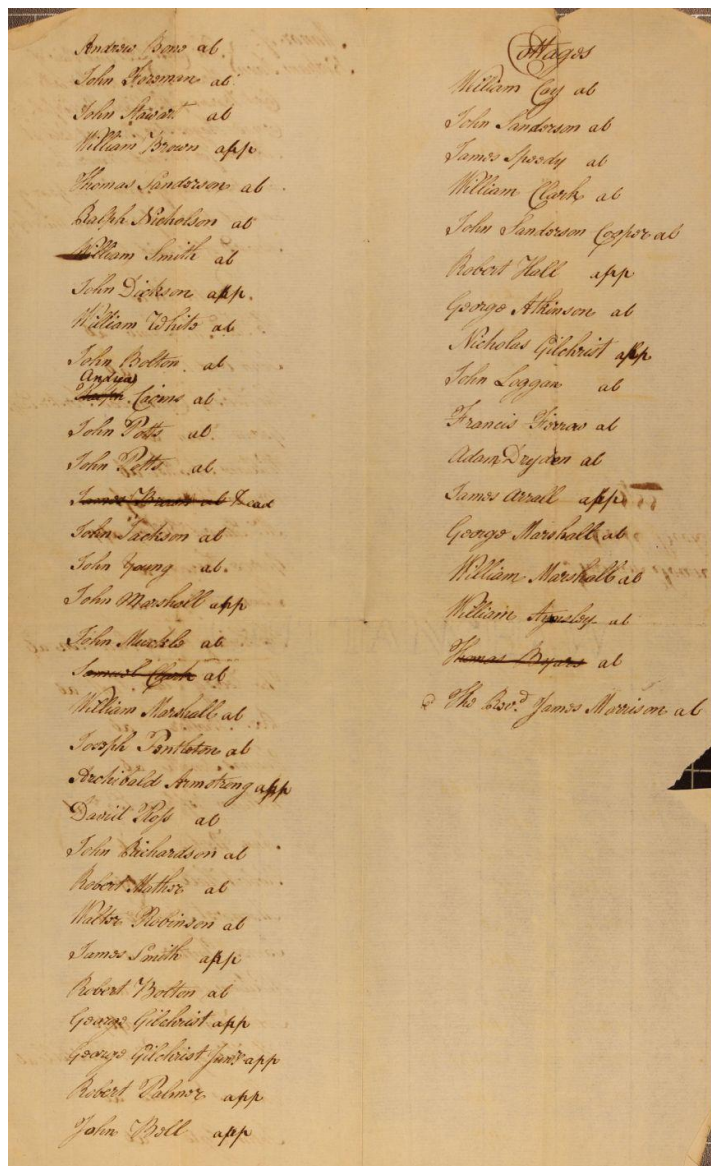 Andrew Bone ab.
John Foreman ab
John Stewart ab
William Brown app.
Thomas Sanderson ab
Ralph Nicholson ab
William Smith ab
John Dickson app.
William White ab
John Bolton ab
Andrew
Cairns ab
John Potts ab
John Potts ab.
James Brown ab Dead
John Jackson ab
John Young ab.
John Marshall app
John Muckle ab
Samuel Clark ab
William Marshall ab
Joseph Pentleton ab
Archibald Armstrong app
David Ross ab
John Richardson ab
Robert Mather ab
Walter Robinson ab
James Smith app
Robert Bolton ab
George Gilchrist app
George Gilchrist Junr app
Robert Palmer app
John Bell app
Cottages
William Cay ab
John Sanderson ab
James Speedy ab
William Clark ab
John Sanderson Cooper ab
Robert Hall app
George Atkinson ab
Nicholas Gilchrist app
John Loggan ab
Francis ab
Adam Dryden ab
James Arrall app
George Marshall ab
William Marshall ab
William Aynsley ab
Thomas Byars ab
The Revd. James Morrison ab